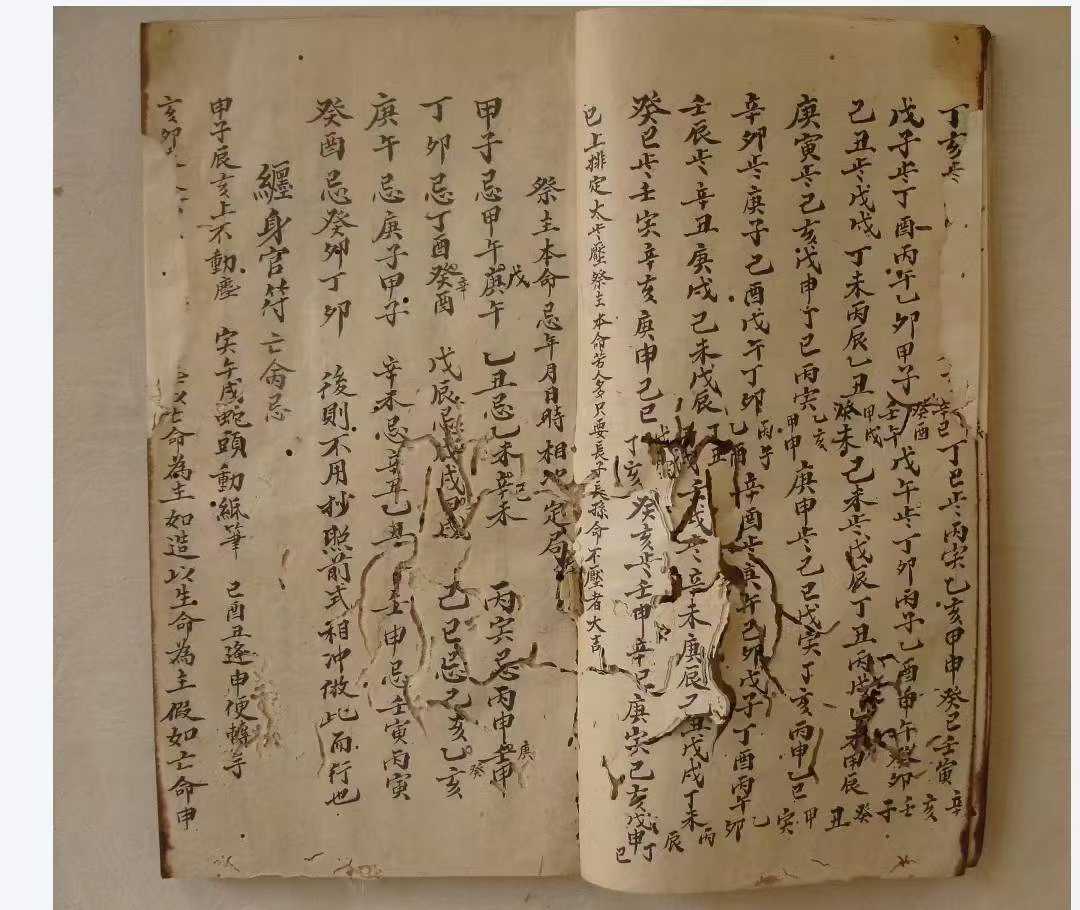 丁亥𡵂
丁巳𡵂丙寅乙亥甲申癸巳壬寅辛亥
戊子𡵂丁酉丙午乙卯甲子
戊午𡵂丁卯丙子乙酉甲午癸卯壬子
己丑𡵂戊戌丁未丙辰乙丑甲戌癸未
己未𡵂戊辰丁丑丙戌乙未甲辰癸丑
庚寅𡵂己亥戊申丁巳丙寅乙亥甲申
庚申𡵂己巳戊寅丁亥丙申乙巳甲寅
辛卯𡵂庚子己酉戊午丁卯丙子乙酉
辛酉𡵂庚午己卯戊子丁酉丙午乙卯
壬辰𡵂辛丑庚戌己未戊辰丁丑
壬戌𡵂辛未庚辰己丑戊戌丁未丙辰
癸巳𡵂壬寅辛亥庚申己巳丁亥
癸亥𡵂壬申辛巳庚寅己亥戊申丁巳
已上排定太𡵂壓祭主本命若人多只要長子長孫命不壓者大吉
祭主本命忌年月日時相冲定局
甲子忌甲午庚午戊 乙丑忌乙未辛未己 丙寅忌丙申壬申庚
丁卯忌丁酉癸酉辛 戊辰忌戊戌甲戌 己巳忌己亥乙亥癸
庚午忌庚子甲子 辛未忌辛丑乙丑 壬申忌壬寅丙寅
癸酉忌癸卯丁卯 後則不用抄照前式相冲倣此而行也
纏身官符亡命忌
申子辰亥上不動塵 寅午戌蛇頭動紙筆 巳酉丑逐申便轉手
亥卯
亡命為主如造以生命為主假如亡命申